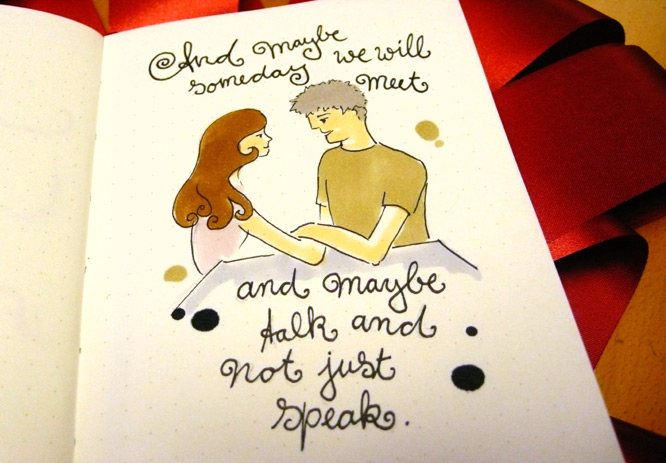 And maybe we will
someday meet
and maybe
talk and
not just
speak.